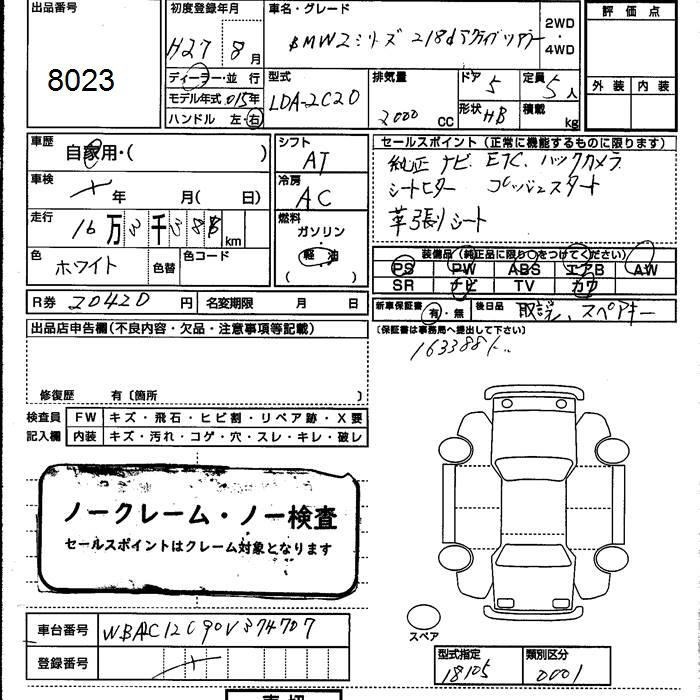 出品番号
8023
初度登録年月
H27 8月
車名・グレード
BMW 2シリーズ 218d アクティブツアラー
2WD
・
4WD
評価点
外装 内装
ディーラー・並行
モデル年式 015年
ハンドル 左・右
型式
LDA-2C20
排気量
2000 cc
ドア 5
形状 HB
定員 5人
積載 kg
車歴
自家用・( )
車検
年 月( 日)
走行
16万3千388km
色
ホワイト
色替
色コード
シフト
AT
冷房
AC
燃料
ガソリン
・
軽油
( )
セールスポイント (正常に機能するものに限ります)
純正ナビ ETC バックカメラ
シートヒーター プッシュスタート
革張りシート
装備品(純正品に限り○をつけてください)
PS PW ABS エアB AW
SR ナビ TV カワ
R券 20420円
名変期限 月 日
新車保証書
有・無
後日品
取説、スペアキー
(保証書は事務局へ提出して下さい)
163388k
出品店申告欄(不良内容・欠品・注意事項等記載)
修復歴 有〔箇所 〕
検査員
記入欄
FW キズ・飛石・ヒビ割・リペア跡・X要
内装 キズ・汚れ・コゲ・穴・スレ・キレ・破レ
ノークレーム・ノー検査
セールスポイントはクレーム対象となります
スペア
車台番号 WBA2C12090V374707
登録番号
型式指定
18105
類別区分
0001